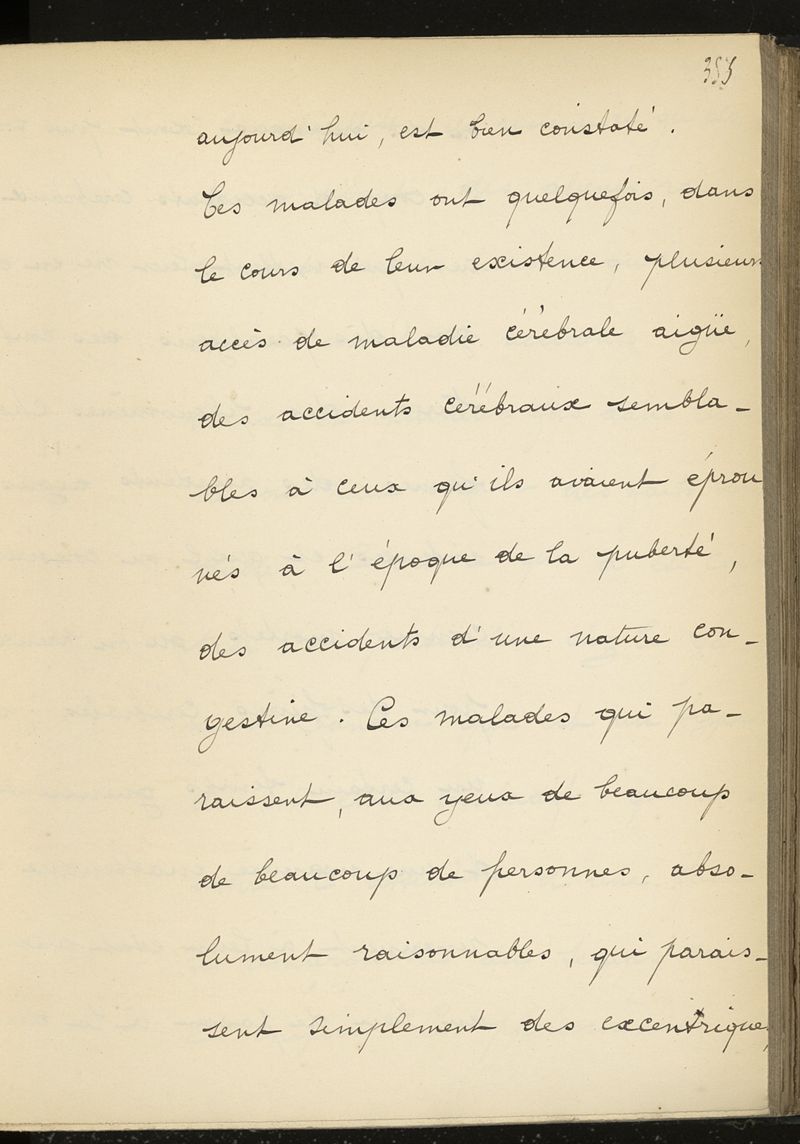 353
aujourd'hui, est bien constaté.
Ces malades ont quelquefois, dans
le cours de leur existence, plusieurs
accès de maladie cérébrale aigüe,
des accidents cérébraux sembla-
bles à ceux qu'ils avaient éprou
vés à l'époque de la puberté,
des accidents d'une nature con-
gestive. Ces malades qui pa-
raissent, aux yeux de beaucoup
de beaucoup de personnes, abso-
lument raisonnables, qui parais-
sent simplement des excentriques,